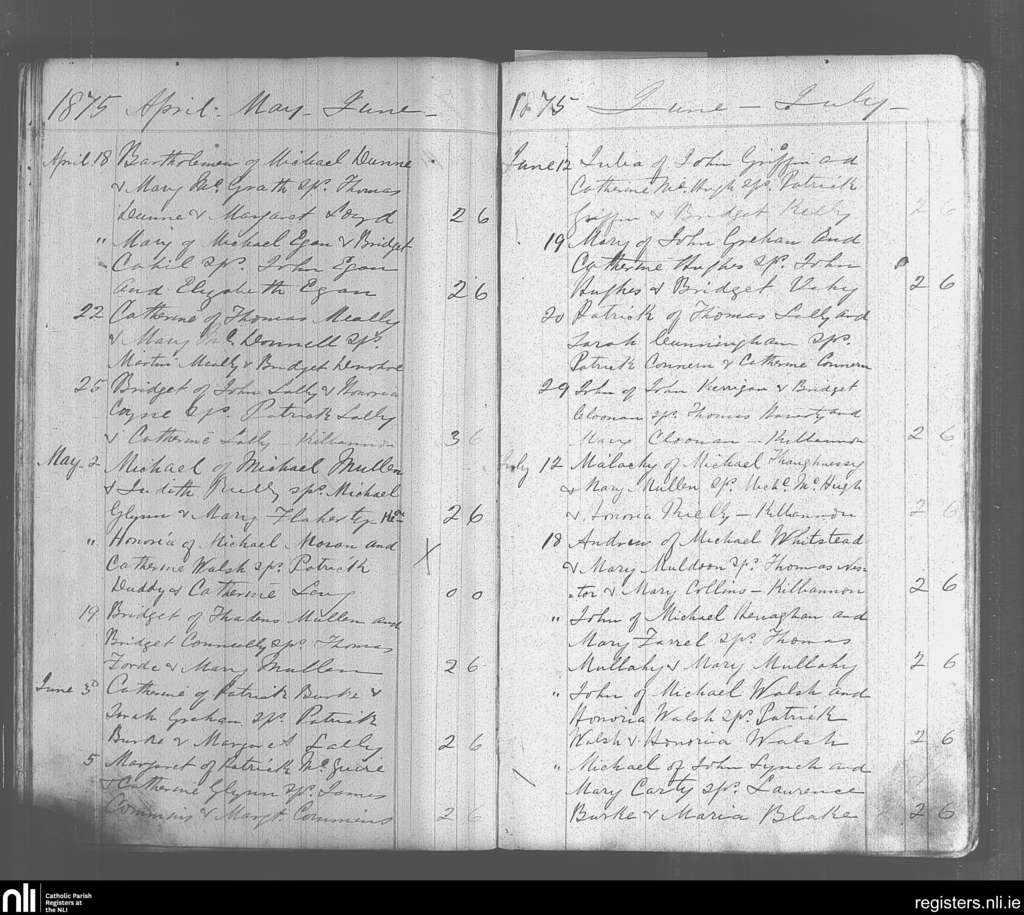 1875 April. May - June -
April 18 Bartholemew of Michael Dunne
& Mary Mc. Grath Sps. Thomas
Dunne & Margaret Loyd 2 6
" Mary of Michael Egan & Bridget
Cahil Sps. John Egan
and Elizabeth Egan 2 6
22 Catherine of Thomas Meally
& Mary Mc. Donnell Sps.
Martin Meally & Bridget
25 Bridget of John Lally & Honoria
Coyne Sps. Patrick Lally
& Catherine Lally - Kilbannon 3 6
May - 2 Michael of Michael Mullen
& Judith Reilly Sps. Michael
Glynn & Mary Flaherty 2 6
" Honoria of Michael Moran and
Catherine Walsh Sps. Patrick X
Duddy & Catherine Long 0 0
19 Bridget of Thadeus Mullen and
Bridget Connelly Sps. Thomas
Forde & Mary Mullen 2 6
June 3d Catherine of Patrick Burke &
Sarah Graham Sps. Patrick
Burke & Margaret Lally 2 6
5 Margaret of Patrick Mc. Guire
& Catherine Glynn Sps. James
Commins & Margt. Commens 2 6
1875 June - July -
June 12 Julia of John Griffin and
Catherine Mc. Hugh Sps. Patrick
Griffin & Bridget Kelly 2 6
19 Mary of John Grehan and
Catherine Hughes Sps. John
Hughes & Bridget 2 6
20 Patrick of Thomas Lally and
Sarah Cunningham Sps.
Patrick Connern & Catherine Connern
29 John of John Kerrigan & Bridget
Cloonan Sps. Thomas and
Mary Cloonan - Kilbannon 2 6
July 12 Malachy of Michael Shaughnessy
& Mary Mullen Sps. Michl. Mc. Hugh
& Honoria Reilly - Kilbannon 2 6
18 Andrew of Michael Whitstead
& Mary Muldoon Sps. Thomas Nes-
tor & Mary Collins - Kilbannon 2 6
" John of Michael Henaghan and
Mary Farrel Sps. Thomas
Mullahy & Mary Mullahy 2 6
" John of Michael Walsh and
Honoria Walsh Sps. Patrick
Walsh & Honoria Walsh 2 6
" Michael of John Lynch and
Mary Carty Sps. Lawrence
Burke & Maria Blake 2 6
nli
Catholic Parish
Registers at
the NLI
registers.nli.ie